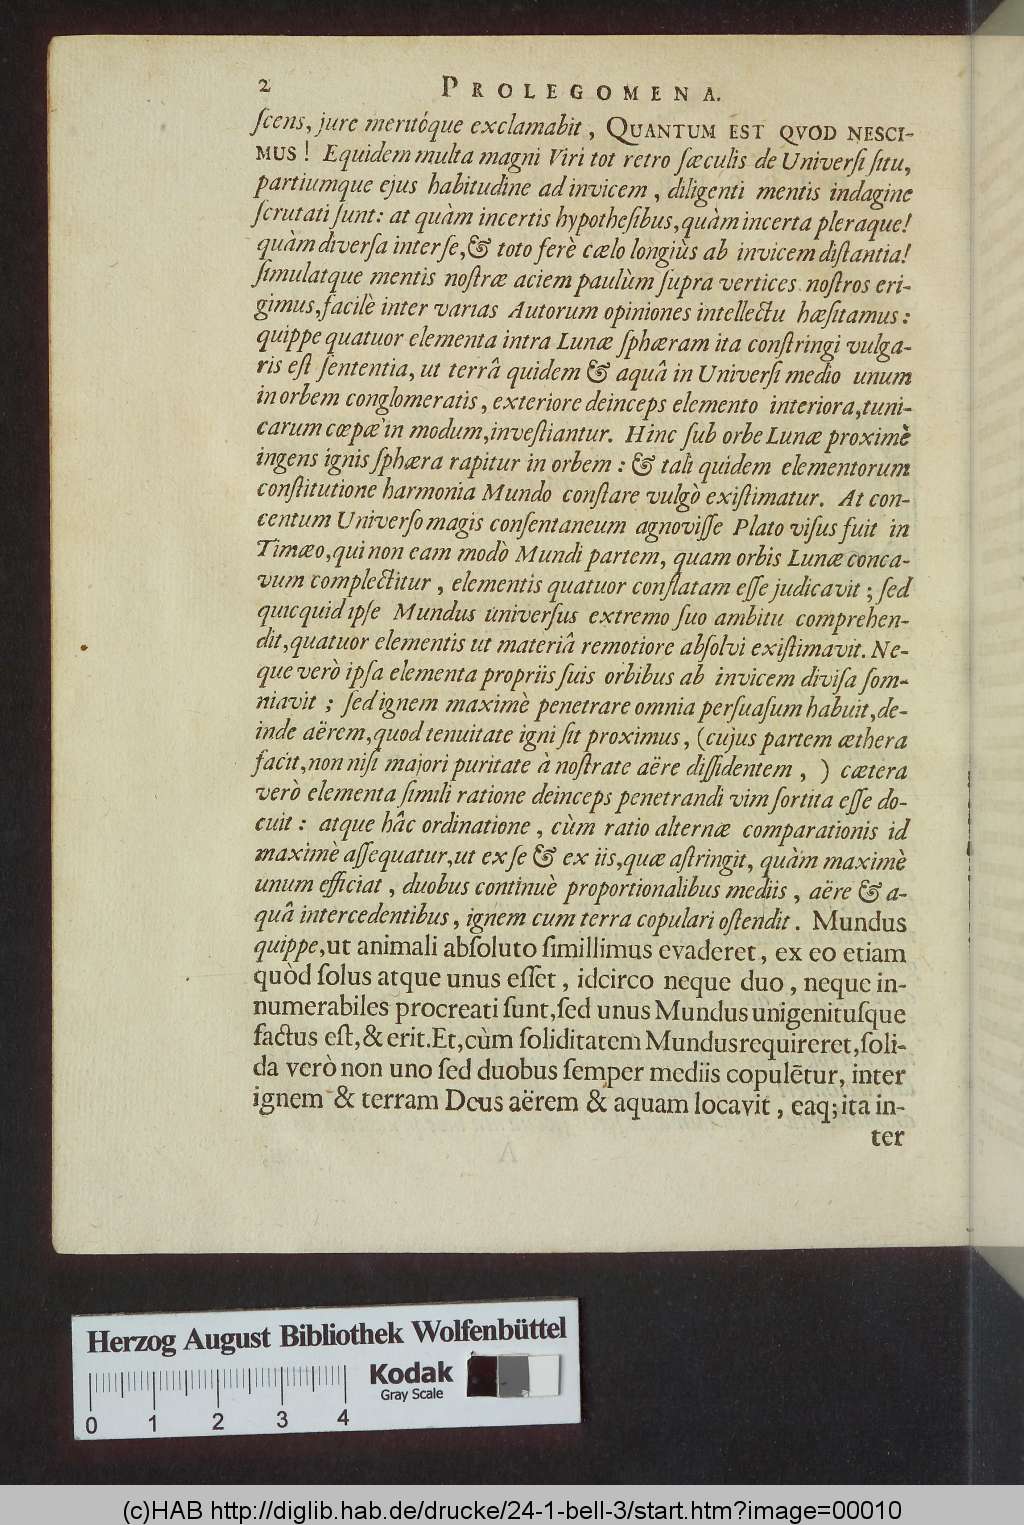 2 PROLEGOMENA.
ſcens, jure meritóque exclamabit, QUANTUM EST QVOD NESCI-
MUS! Equidem multa magni Viri tot retro ſæculis de Univerſi ſitu,
partiumque ejus habitudine ad invicem, diligenti mentis indagine
ſcrutati ſunt: at quàm incertis hypotheſibus, quàm incerta pleraque!
quàm diverſa inter ſe, & toto ferè cælo longiùs ab invicem diſtantia!
ſimulatque mentis noſtræ aciem paulùm ſupra vertices noſtros eri-
gimus, facilè inter varias Autorum opiniones intellectu hæſitamus:
quippe quatuor elementa intra Lunæ ſphæram ita conſtringi vulga-
ris eſt ſententia, ut terrâ quidem & aquâ in Univerſi medio unum
in orbem conglomeratis, exteriore deinceps elemento interiora, tuni-
carum cœpæ in modum, inveſtiantur. Hinc ſub orbe Lunæ proximè
ingens ignis ſphæra rapitur in orbem: & tali quidem elementorum
conſtitutione harmonia Mundo conſtare vulgò exiſtimatur. At con-
centum Univerſo magis conſentaneum agnoviſſe Plato viſus fuit in
Timæo, qui non eam modò Mundi partem, quam orbis Lunæ conca-
vum complectitur, elementis quatuor conflatam eſſe judicavit; ſed
quicquid ipſe Mundus univerſus extremo ſuo ambitu comprehen-
dit, quatuor elementis ut materiâ remotiore abſolvi exiſtimavit. Ne-
que verò ipſa elementa propriis ſuis orbibus ab invicem diviſa ſom-
niavit; ſed ignem maximè penetrare omnia perſuaſum habuit, de-
inde aërem, quod tenuitate igni ſit proximus, (cujus partem æthera
facit, non niſi majori puritate à noſtrate aëre diſſidentem, ) cætera
verò elementa ſimili ratione deinceps penetrandi vim ſortita eſſe do-
cuit: atque hâc ordinatione, cùm ratio alternæ comparationis id
maximè aſſequatur, ut ex ſe & ex iis, quæ aſtringit, quàm maximè
unum efficiat, duobus continuè proportionalibus mediis, aëre & a-
quâ intercedentibus, ignem cum terra copulari oſtendit. Mundus
quippe, ut animali abſoluto ſimillimus evaderet, ex eo etiam
quòd ſolus atque unus eſſet, idcirco neque duo, neque in-
numerabiles procreati ſunt, ſed unus Mundus unigenituſque
factus eſt, & erit. Et, cùm ſoliditatem Mundus requireret, ſoli-
da verò non uno ſed duobus ſemper mediis copulētur, inter
ignem & terram Deus aërem & aquam locavit, eaq; ita in-
ter
Herzog August Bibliothek Wolfenbüttel
Kodak
Gray Scale
0 1 2 3 4
(c)HAB http://diglib.hab.de/drucke/24-1-bell-3/start.htm?image=00010